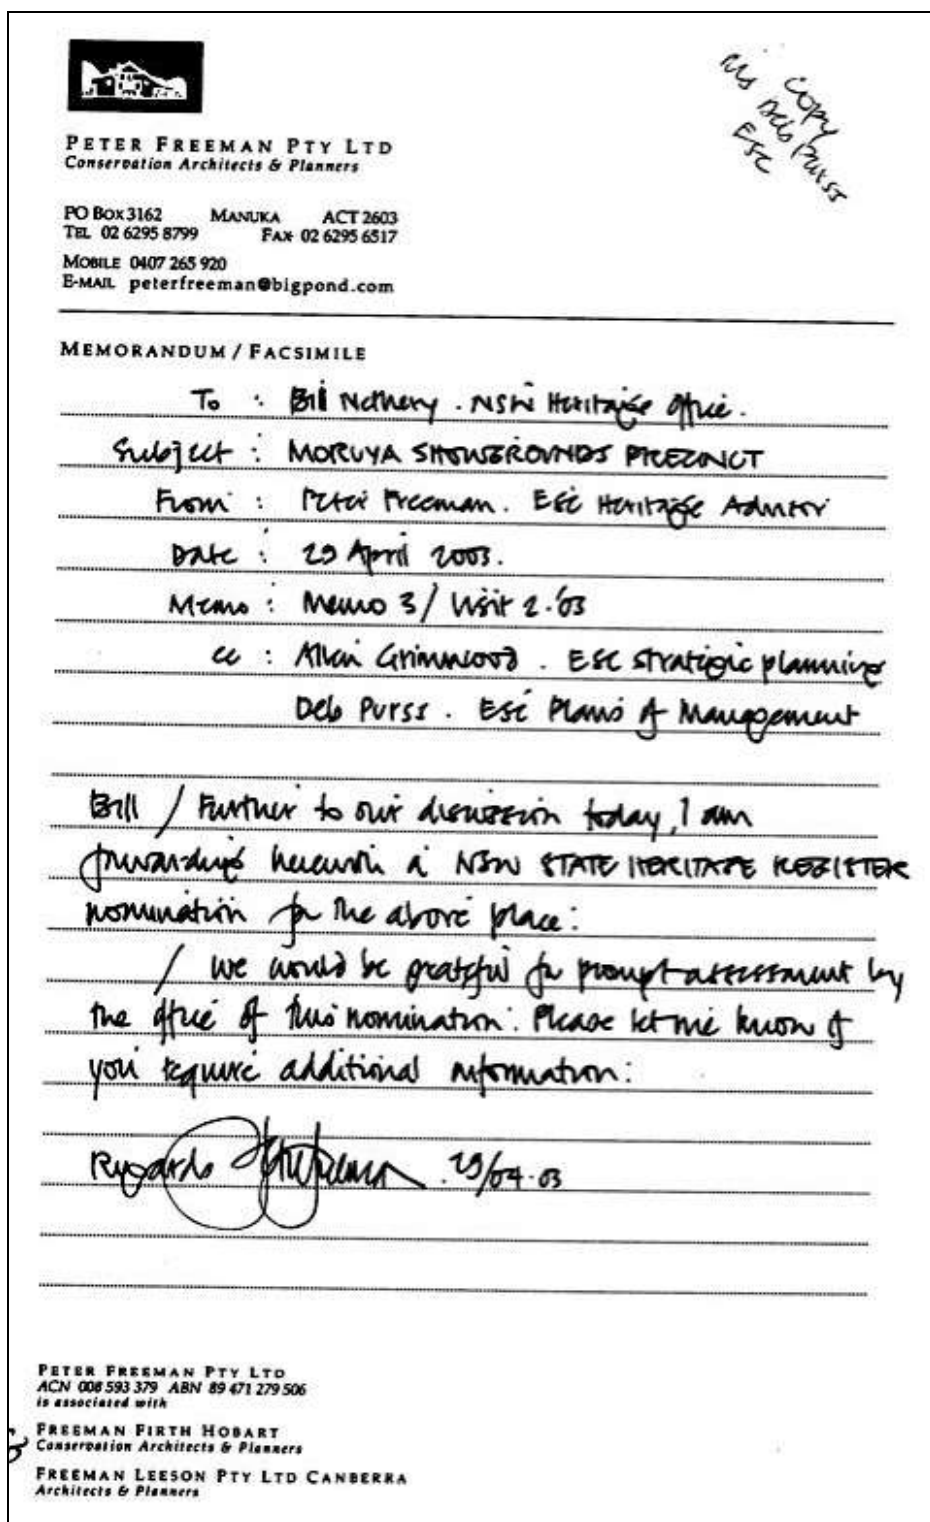 COPY
Ms Deb Purss
ESC
PETER FREEMAN PTY LTD
Conservation Architects & Planners
PO BOX 3162 MANUKA ACT 2603
TEL 02 6295 8799 FAX 02 6295 6517
MOBILE 0407 265 920
E-MAIL peterfreeman@bigpond.com
MEMORANDUM / FACSIMILE
To : Bill Nethery . NSW Heritage Office.
Subject : MORUYA SHOWGROUNDS PRECINCT
From : Peter Freeman. ESC Heritage Advisor
Date : 29 April 2003.
Memo : Memo 3 / Visit 2.03
cc : Allen Grimwood . ESC Strategic planning
Deb Purss . ESC Plans of Management
Bill / Further to our discussion today, I am
forwarding herewith a NSW STATE HERITAGE REGISTER
nomination for the above place:
/ We would be grateful for prompt assessment by
the office of this nomination. Please let me know if
you require additional information:
Regards Peter Freeman . 29/04.03
PETER FREEMAN PTY LTD
ACN 008 593 379 ABN 89 471 279 506
is associated with
FREEMAN FIRTH HOBART
Conservation Architects & Planners
FREEMAN LEESON PTY LTD CANBERRA
Architects & Planners